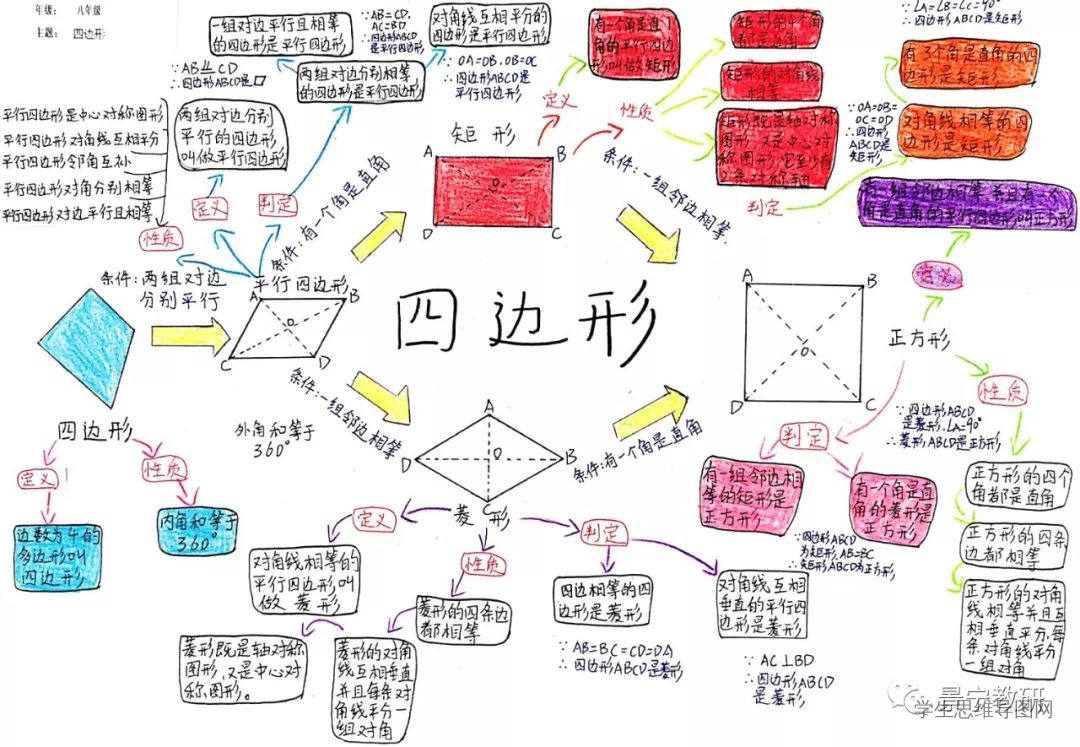 年级： 八年级
主题： 四边形
四边形
四边形
定义
边数为4的
多边形叫
四边形
性质
内角和等于
360°
外角和等于
360°
条件：两组对边
分别平行
平行四边形
A
B
C
D
O
性质
平行四边形是中心对称图形
平行四边形对角线互相平分
平行四边形邻角互补
平行四边形对角分别相等
平行四边形对边平行且相等
定义
两组对边分别
平行的四边形
叫做平行四边形
判定
一组对边平行且相等
的四边形是平行四边形
∵AB⫫CD
∴四边形ABCD是▱
两组对边分别相等
的四边形是平行四边形
∵AB=CD,
AC=BD
∴四边形ABCD
是平行四边形
对角线互相平分的
四边形是平行四边形
∵OA=OB,OB=OC
∴四边形ABCD是
平行四边形
条件：有一个角是直角
矩形
A
B
D
C
O
定义
有一个角是直
角的平行四边形
叫做矩形
性质
矩形的4个角
都是直角
矩形的对角线
相等
矩形既是轴对称
图形，又是中心对
称图形，它至少有
2条对称轴
判定
∵∠A=∠B=∠C=90°
∴四边形ABCD是矩形
有3个角是直角的四
边形是矩形
对角线相等的四
边形是矩形
∵OA=OB=
OC=OD
∴四边形
ABCD是
矩形
条件：一组邻边相等
条件：一组邻边相等
A
D
O
B
C
菱形
定义
对角线相等的
平行四边形叫
做菱形
性质
菱形的四条边
都相等
菱形的对角
线互相垂直
并且每条对
角线平分一
组对角
菱形既是轴对称
图形，又是中心对
称图形。
判定
四边相等的四
边形是菱形
∵AB=BC=CD=DA
∴四边形ABCD是菱形
对角线互相
垂直的平行四
边形是菱形
∵AC⊥BD
∴四边形ABCD
是菱形
条件：有一个角是直角
A
B
O
D
C
正方形
定义
有一组邻边相等并且有一个
角是直角的平行四边形叫正方形
判定
有一组邻边相
等的矩形是
正方形
∵四边形ABCD
为矩形,AB=BC
∴矩形ABCD为正方形
有一个角是直
角的菱形是
正方形
∵四边形ABCD
是菱形,∠A=90°
∴菱形ABCD是正方形
性质
正方形的四个
角都是直角
正方形的四条
边都相等
正方形的对角
线相等并且互
相垂直平分,每
条对角线平分
一组对角
景宁教研
学生思维导图网